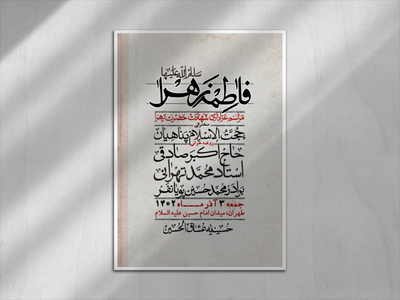 سلام الله علیها
فاطمه زهرا
مراسم عزاداری شهادت حضرت زهرا
سخنران
حجت الاسلام پناهیان
روضه خوانی
حاج اکبر صادقی
استاد محمد تهرانی
برادر محمد حسین پویانفر
جمعه ۳ آذر ماه ۱۴۰۲
طهران، میدان امام حسین علیه السلام
حسینیه عشاق الحسین